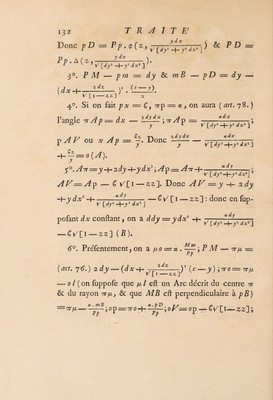 132 TRAITÉ
Donc pD = Pp . φ(z, ydx / √[dy² + y² dx²]) & PD =
Pp . Δ(z, ydx / √[dy² + y² dx²]).
3°. PM — pm = dy & mB — pD = dy —
(dx + zdz / √[1 — zz])² . (c — y) / 2.
4°. Si on fait px = ζ, πp = α, on aura (art. 78.)
l'angle πAp = dx — zdydx / y; πAp = αdx / √[dy² + y² dx²];
pAV ou xAp = ζz / y. Donc zdydx / y — αdx / √[dy² + y² dx²]
+ ζz / y = o (A).
5°. Aπ = y + 2dy + ydx²; Ap = Aπ + αdy / √[dy² + y² dx²];
AV = Ap — ζ√[1 — zz]. Donc AV = y + 2dy
+ ydx² + αdy / √[dy² + y² dx²] — ζ√[1 — zz]: donc en sup-
posant dx constant, on a ddy = ydx² + αdy / √[dy² + y² dx²]
— ζ√[1 — zz] (B).
6°. Présentement, on a μo = α . Mm / Pp; PM — πμ =
(art. 76.) 2dy — (dx + zdz / √[1 — zz])² (c — y); πo = πμ
— ol (on suppose que μl est un Arc décrit du centre π
& du rayon πμ, & que MB est perpendiculaire à pB)
= πμ — α . mB / Pp; op = πo + α . pD / Pp; oV = op — ζ√[1 — zz];